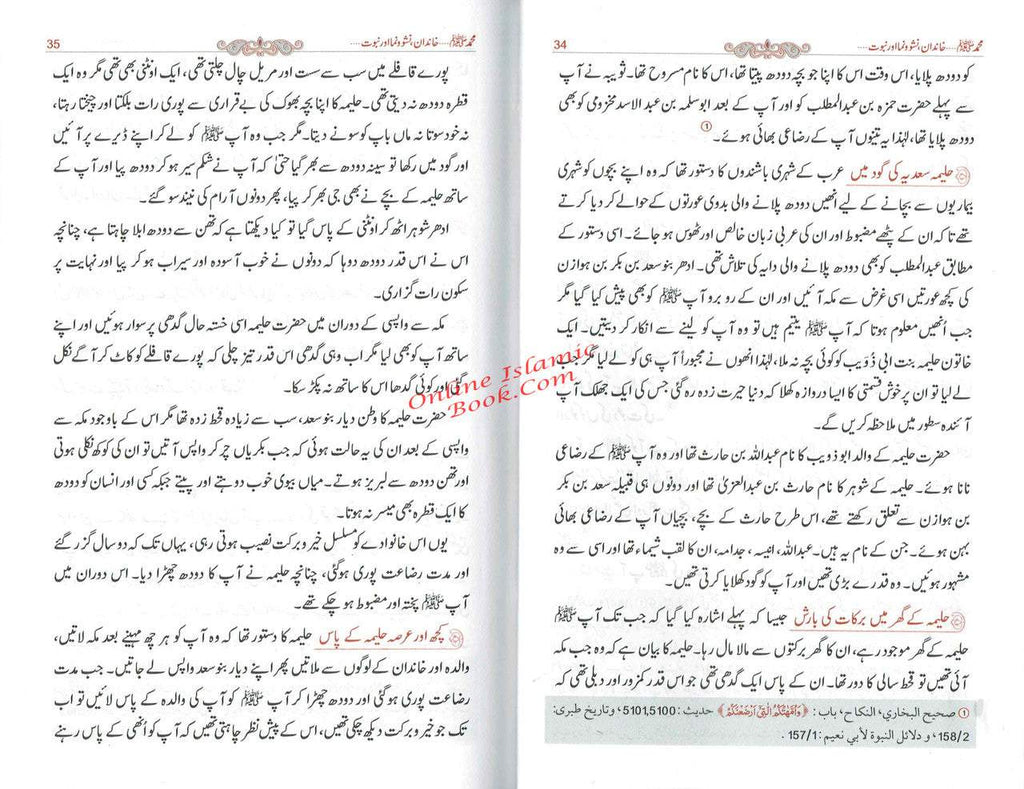 محمد ﷺ.... خاندان، نشوونما اور نبوت....
34
کو دودھ پلایا، اس وقت اس کا اپنا جو بچہ دودھ پیتا تھا، اس کا نام مسروح تھا۔ ثویبہ نے آپ
سے پہلے حضرت حمزہ بن عبدالمطلب کو اور آپ کے بعد ابوسلمہ بن عبدالاسد مخزومی کو بھی
دودھ پلایا تھا، لہٰذا یہ تینوں آپ کے رضاعی بھائی ہوئے۔ ①
حلیمہ سعدیہ کی گود میں عرب کے شہری باشندوں کا دستور تھا کہ وہ اپنے بچوں کو شہری
بیماریوں سے بچانے کے لیے انھیں دودھ پلانے والی بدوی عورتوں کے حوالے کر دیا کرتے
تھے تاکہ ان کے پٹھے مضبوط اور ان کی عربی زبان خالص اور ٹھوس ہو جائے۔ اسی دستور کے
مطابق عبدالمطلب کو بھی دودھ پلانے والی دایہ کی تلاش تھی۔ ادھر بنو سعد بن بکر بن ہوازن
کی کچھ عورتیں اسی غرض سے مکہ آئیں اور ان کے رو برو آپ ﷺ کو بھی پیش کیا گیا مگر
جب انھیں معلوم ہوتا کہ آپ ﷺ یتیم ہیں تو وہ آپ کو لینے سے انکار کر دیتیں۔ ایک
خاتون حلیمہ بنت ابی ذُؤیب کو کوئی بچہ نہ ملا، لہٰذا انھوں نے مجبوراً آپ ہی کو لے لیا مگر جب
لے لیا تو ان پر خوش قسمتی کا ایسا دروازہ کھلا کہ دنیا حیرت زدہ رہ گئی جس کی ایک جھلک آپ
آئندہ سطور میں ملاحظہ کریں گے۔
حضرت حلیمہ کے والد ابو ذویب کا نام عبداللہ بن حارث تھا اور وہ آپ ﷺ کے رضاعی
نانا ہوئے۔ حلیمہ کے شوہر کا نام حارث بن عبدالعزیٰ تھا اور دونوں ہی قبیلہ سعد بن بکر
بن ہوازن سے تعلق رکھتے تھے، اس طرح حارث کے بچے، بچیاں آپ کے رضاعی بھائی
بہن ہوئے۔ جن کے نام یہ ہیں۔ عبداللہ، انیسہ، جدامہ، ان کا لقب شیماء تھا اور اسی سے وہ
مشہور ہوئیں۔ وہ قدرے بڑی تھیں اور آپ کو گود کھلایا کرتی تھیں۔
حلیمہ کے گھر میں برکات کی بارش جیسا کہ پہلے اشارہ کیا گیا کہ جب تک آپ ﷺ
حلیمہ کے گھر موجود رہے، ان کا گھر برکتوں سے مالا مال رہا۔ حلیمہ کا بیان ہے کہ وہ جب مکہ
آئی تھیں تو قحط سالی کا دور تھا۔ ان کے پاس ایک گدھی تھی جو اس قدر کمزور اور دبلی تھی کہ
① صحيح البخاري، النكاح، باب: ﴿وَأُمَّهٰتُكُمُ الّٰتِيْ أَرْضَعْنَكُمْ﴾ حديث: 5101,5100، وتاريخ طبری:
158/2، و دلائل النبوة لأبي نعيم: 157/1.
محمد ﷺ.... خاندان، نشوونما اور نبوت....
35
پورے قافلے میں سب سے سست اور مریل چال چلتی تھی، ایک اونٹنی بھی تھی مگر وہ ایک
قطرہ دودھ نہ دیتی تھی۔ حلیمہ کا اپنا بچہ بھوک کی بے قراری سے پوری رات بلکتا اور چیختا رہتا،
نہ خود سوتا نہ ماں باپ کو سونے دیتا۔ مگر جب وہ آپ ﷺ کو لے کر اپنے ڈیرے پر آئیں
اور گود میں رکھا تو سینہ دودھ سے بھر گیا حتیٰ کہ آپ نے شکم سیر ہو کر دودھ پیا اور آپ کے
ساتھ حلیمہ کے بچے نے بھی جی بھر کر پیا، پھر دونوں آرام کی نیند سو گئے۔
ادھر شوہر اٹھ کر اونٹنی کے پاس گیا تو کیا دیکھتا ہے کہ تھن سے دودھ ابلا چاہتا ہے، چنانچہ
اس نے اس قدر دودھ دوہا کہ دونوں نے خوب آسودہ اور سیراب ہو کر پیا اور نہایت پر
سکون رات گزاری۔
مکہ سے واپسی کے دوران میں حضرت حلیمہ اسی خستہ حال گدھی پر سوار ہوئیں اور اپنے
ساتھ آپ کو بھی لیا مگر اب وہی گدھی اس قدر تیز چلی کہ پورے قافلے کو کاٹ کر آگے نکل
گئی اور کوئی گدھا اس کا ساتھ نہ پکڑ سکا۔
حضرت حلیمہ کا وطن دیار بنو سعد، سب سے زیادہ قحط زدہ تھا مگر اس کے باوجود مکہ سے
واپسی کے بعد ان کی یہ حالت ہوئی کہ جب بکریاں چر کر واپس آتیں تو ان کی کوکھ نکلی ہوتی
اور تھن دودھ سے لبریز ہوتے۔ میاں بیوی خوب دوہتے اور پیتے جبکہ کسی اور انسان کو دودھ
کا ایک قطرہ بھی میسر نہ ہوتا۔
یوں اس خانوادے کو مسلسل خیر و برکت نصیب ہوتی رہی، یہاں تک کہ دو سال گزر گئے
اور مدت رضاعت پوری ہو گئی، چنانچہ حلیمہ نے آپ کا دودھ چھڑا دیا۔ اس دوران میں
آپ ﷺ پختہ اور مضبوط ہو چکے تھے۔
کچھ اور عرصہ حلیمہ کے پاس حلیمہ کا دستور تھا کہ وہ آپ کو ہر چھ مہینے بعد مکہ لاتیں،
والدہ اور خاندان کے لوگوں سے ملاتیں پھر اپنے دیار بنو سعد واپس لے جاتیں۔ جب مدت
رضاعت پوری ہو گئی اور دودھ چھڑا کر آپ ﷺ کو آپ کی والدہ کے پاس لائیں تو اب
تک جو خیر و برکت دیکھ چکی تھیں، اس کے پیش نظر چاہتی تھیں کہ آپ کو ابھی انھی کے پاس رہنے
Online Islamic
Book.Com